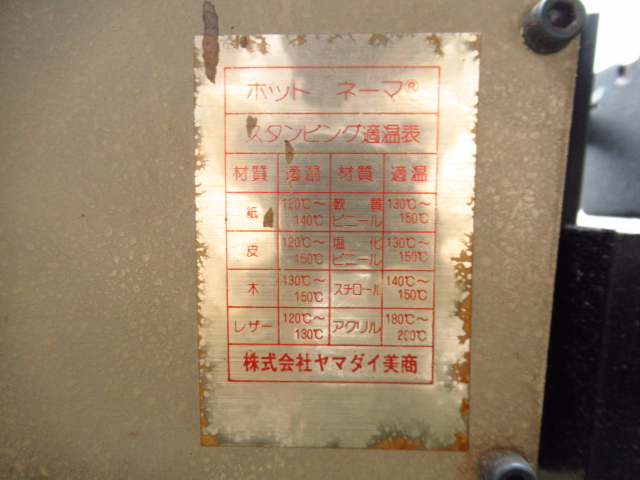 ホット ネーマ®
スタンピング適温表
材質 適温 材質 適温
紙 120℃～140℃ 軟質ビニール 130℃～150℃
皮 120℃～150℃ 塩化ビニール 130℃～150℃
木 130℃～150℃ スチロール 140℃～150℃
レザー 120℃～130℃ アクリル 180℃～200℃
株式会社ヤマダイ美商